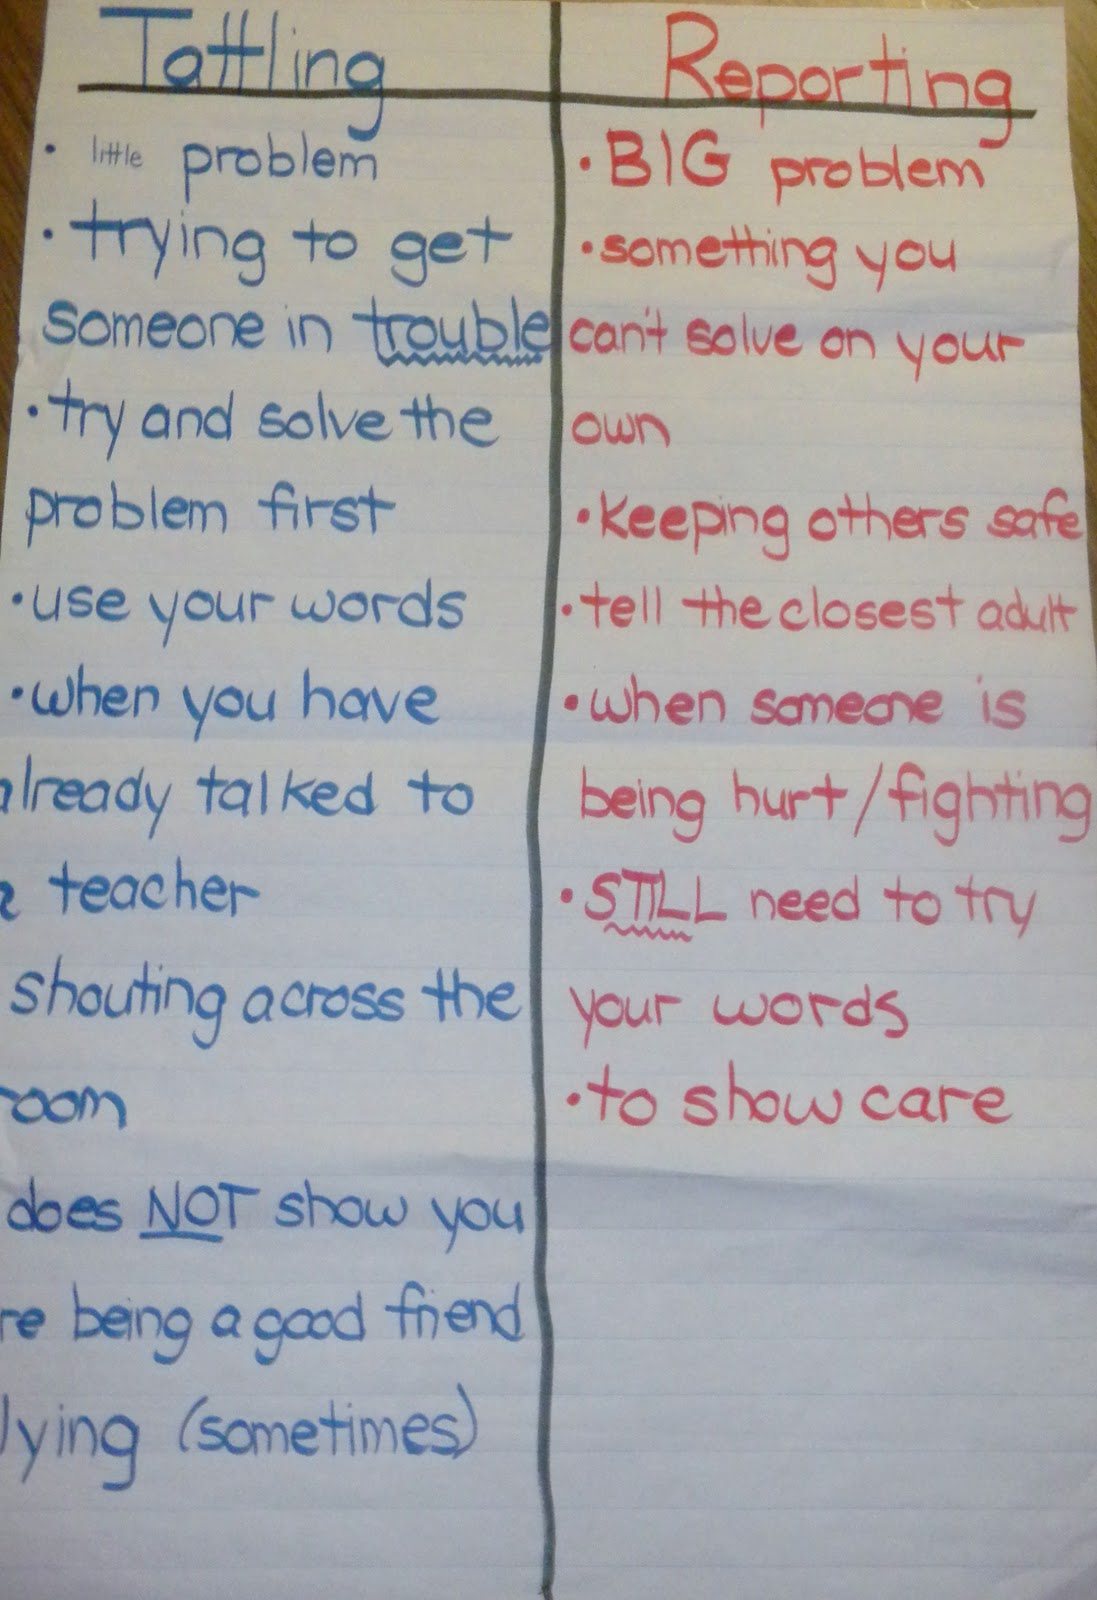 Tattling
• little problem
• trying to get
someone in trouble
• try and solve the
problem first
• use your words
• when you have
already talked to
a teacher
shouting across the
room
does NOT show you
re being a good friend
lying (sometimes)
Reporting
• BIG problem
• something you
can't solve on your
own
• keeping others safe
• tell the closest adult
• when someone is
being hurt/fighting
• STILL need to try
your words
• to show care